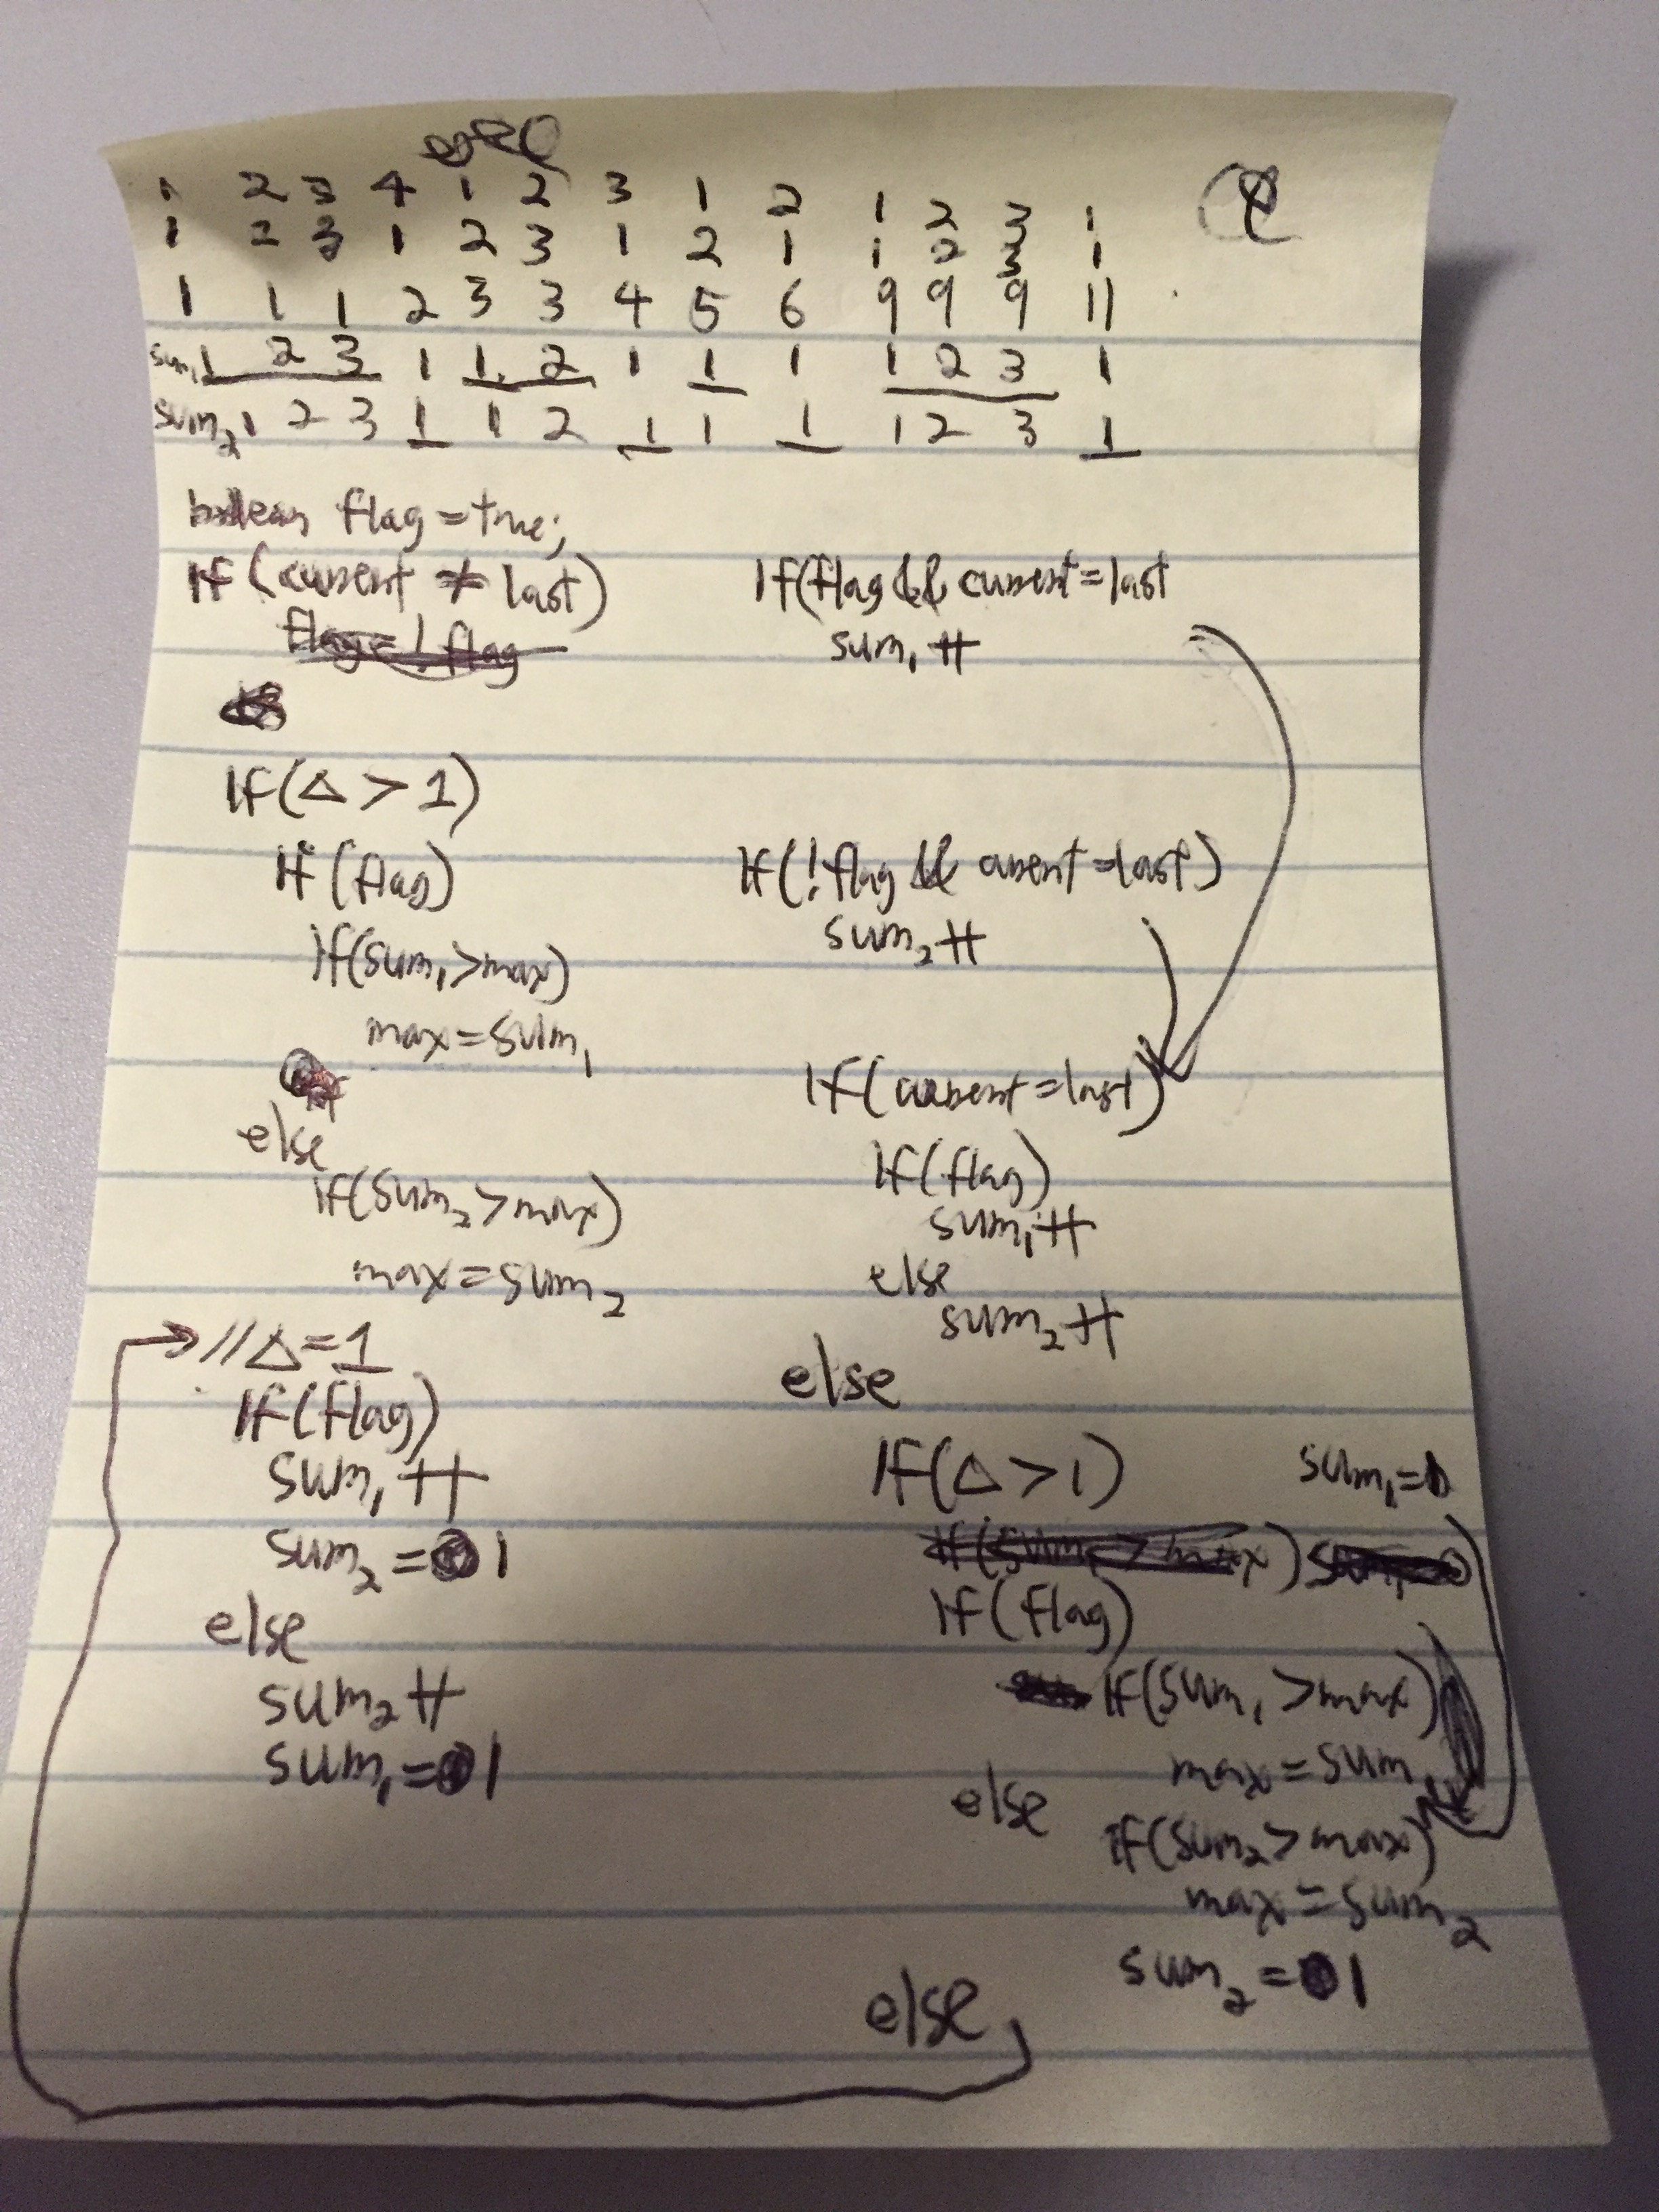 1 2 3 4 1 2 3 1 2 1 2 3 1
1 2 3 1 2 3 1 2 1 1 2 3 1
1 1 1 2 3 3 4 5 6 9 9 9 11
sum₁ 1 2 3 1 1 2 1 1 1 1 2 3 1
sum₂ 1 2 3 1 1 2 1 1 1 1 2 3 1
boolean flag = true;
If (current ≠ last)
flag = !flag
If (Δ > 1)
If (flag)
If (sum₁ > max)
max = sum₁
else
if (sum₂ > max)
max = sum₂
// Δ = 1
If (flag)
sum₁ ++
sum₂ = 1
else
sum₂ ++
sum₁ = 1
If (flag && current = last
sum₁ ++
If (!flag && curent = last)
sum₂ ++
If (current = last)
If (flag)
sum₁ ++
else
sum₂ ++
else
If (Δ > 1) sum₁ =
If (sum₁ > max)
If (flag)
If (sum₁ > max)
max = sum₁
else
if (sum₂ > max)
max = sum₂
sum₂ = 1
else